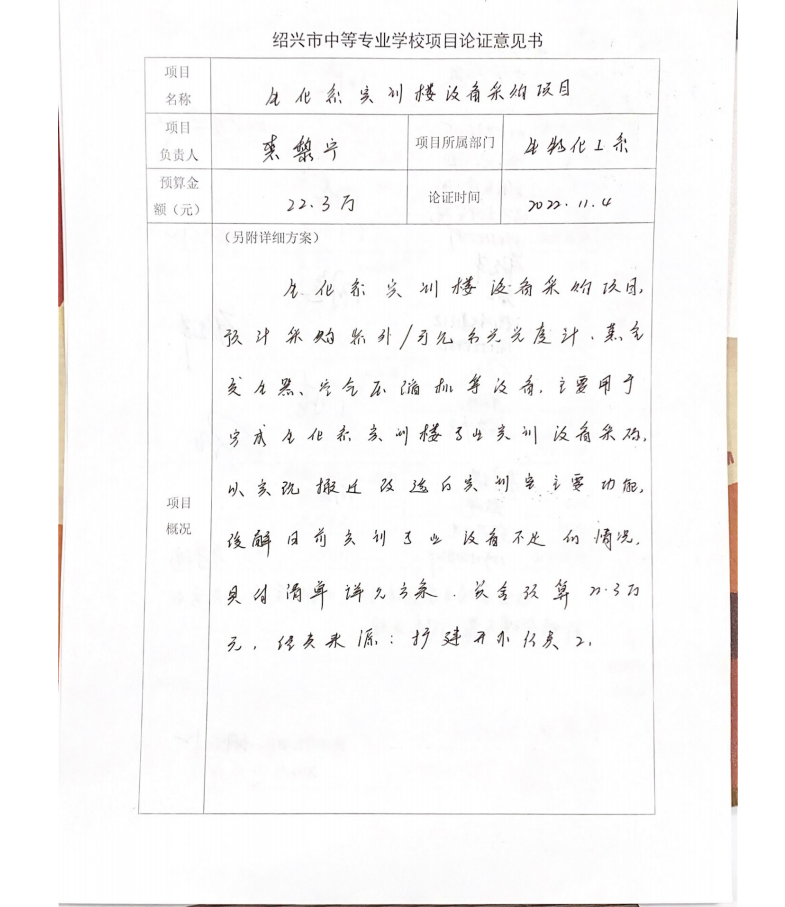 绍兴市中等专业学校项目论证意见书
项目名称 生化系实训楼设备采购项目
项目负责人 裘黎宁 项目所属部门 生物化工系
预算金额（元） 22.3万 论证时间 2022.11.4
项目概况
（另附详细方案）
生化系实训楼设备采购项目,
预计采购紫外/可见分光光度计、蒸气
发生器、空气压缩机等设备,主要用于
完成生化系实训楼专业实训设备采购,
以实现搬迁改造后实训室主要功能,
缓解目前实训专业设备不足的情况,
具体清单详见方案. 共含预算 22.3万
元, 经费来源: 扩建开办经费2.